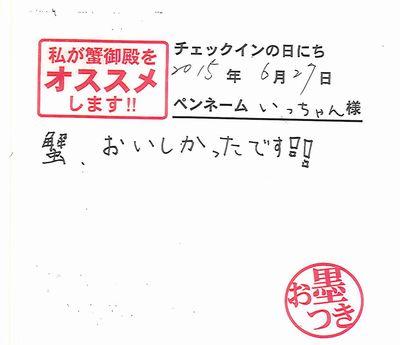 私が蟹御殿を
オススメ
します!!
チェックインの日にち
2015年6月27日
ペンネーム いっちゃん様
蟹、おいしかったです!!
お墨つき